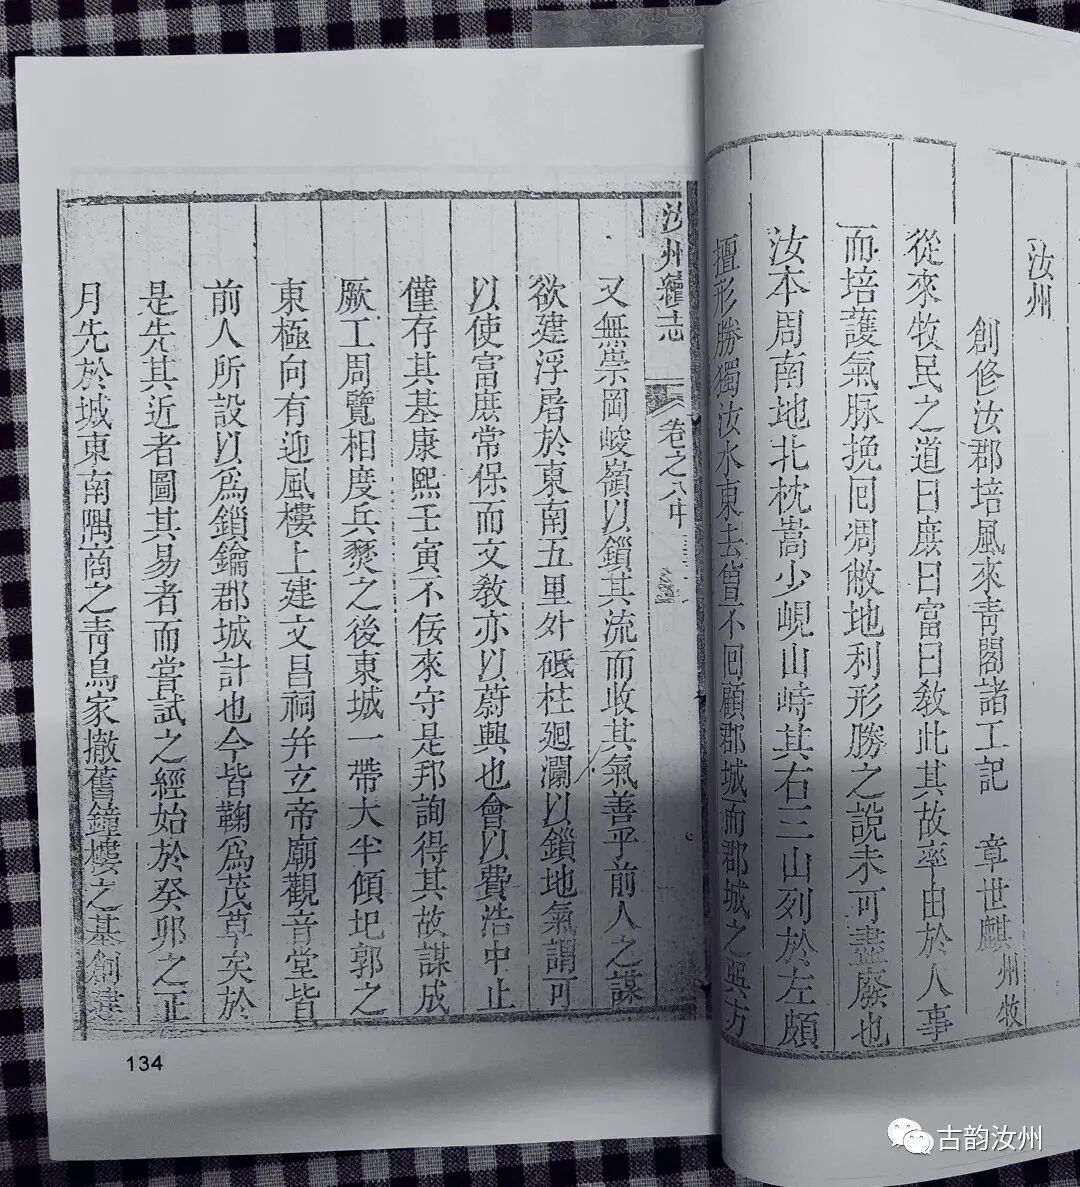 汝州
創修汝郡培風來青閣諸工記 章世麒州牧
從來牧民之道曰庶曰富曰教此其故率由於人事
而培護氣脉挽回凋敝地利形勝之説未可盡廢也
汝本周南地北枕嵩少峴山峙其右三山列於左頗
擅形勝獨汝水東去曾不回顧郡城而郡城之巽方
汝州續志 卷之八中
又無崇岡峻嶺以鎖其流而收其氣善乎前人之謀
欲建浮屠於東南五里外砥柱廻瀾以鎖地氣謂可
以使富庶常保而文教亦以蔚興也會以費浩中止
僅存其基康熙壬寅不佞來守是邦詢得其故謀成
厥工周覽相度兵燹之後東城一帶大半傾圯郭之
東極向有迎風樓上建文昌祠并立帝廟觀音堂皆
前人所設以為鎖鑰郡城計也今皆鞠為茂草矣於
是先其近者圖其易者而嘗試之經始於癸卯之正
月先於城東南隅商之青烏家撤舊鐘樓之基創建
134
古韵汝州